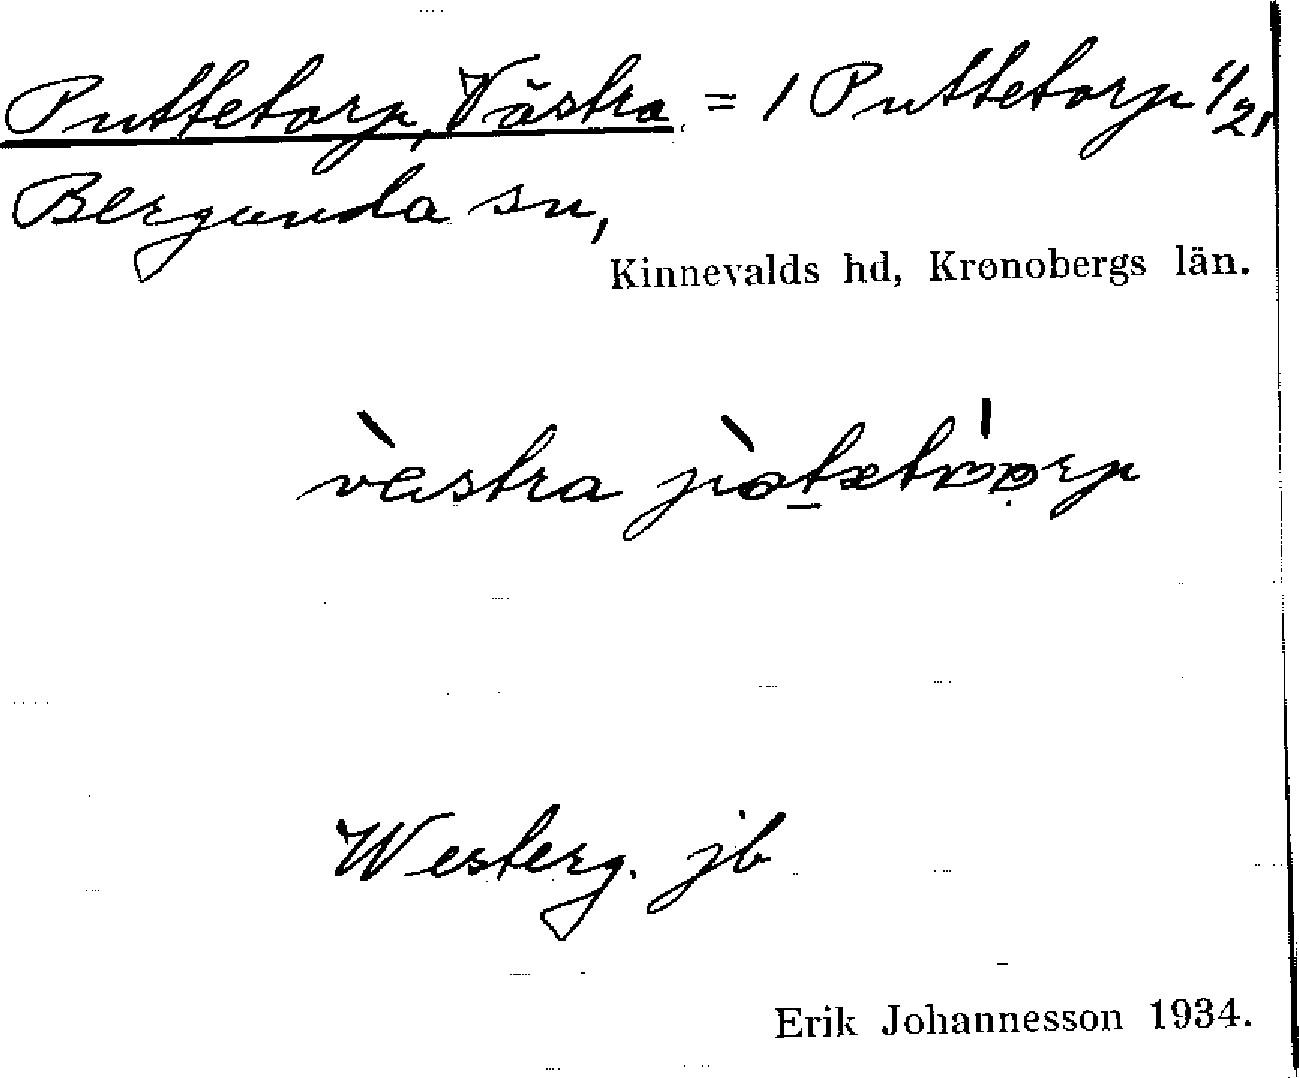 Puttetorp, Västra = 1 Puttetorp 1/2,
Bergunda sn,
Kinnevalds hd, Kronobergs län.
västra
Westerg. jb
Erik Johannesson 1934.